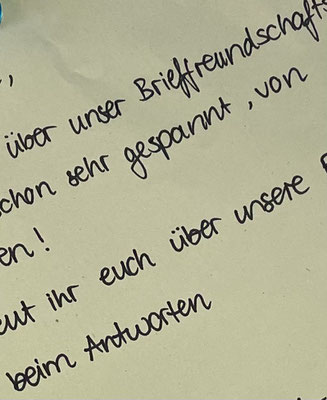 ,
über unser Brieffreundschafts
schon sehr gespannt, von
en!
eut ihr euch über unsere
beim Antworten